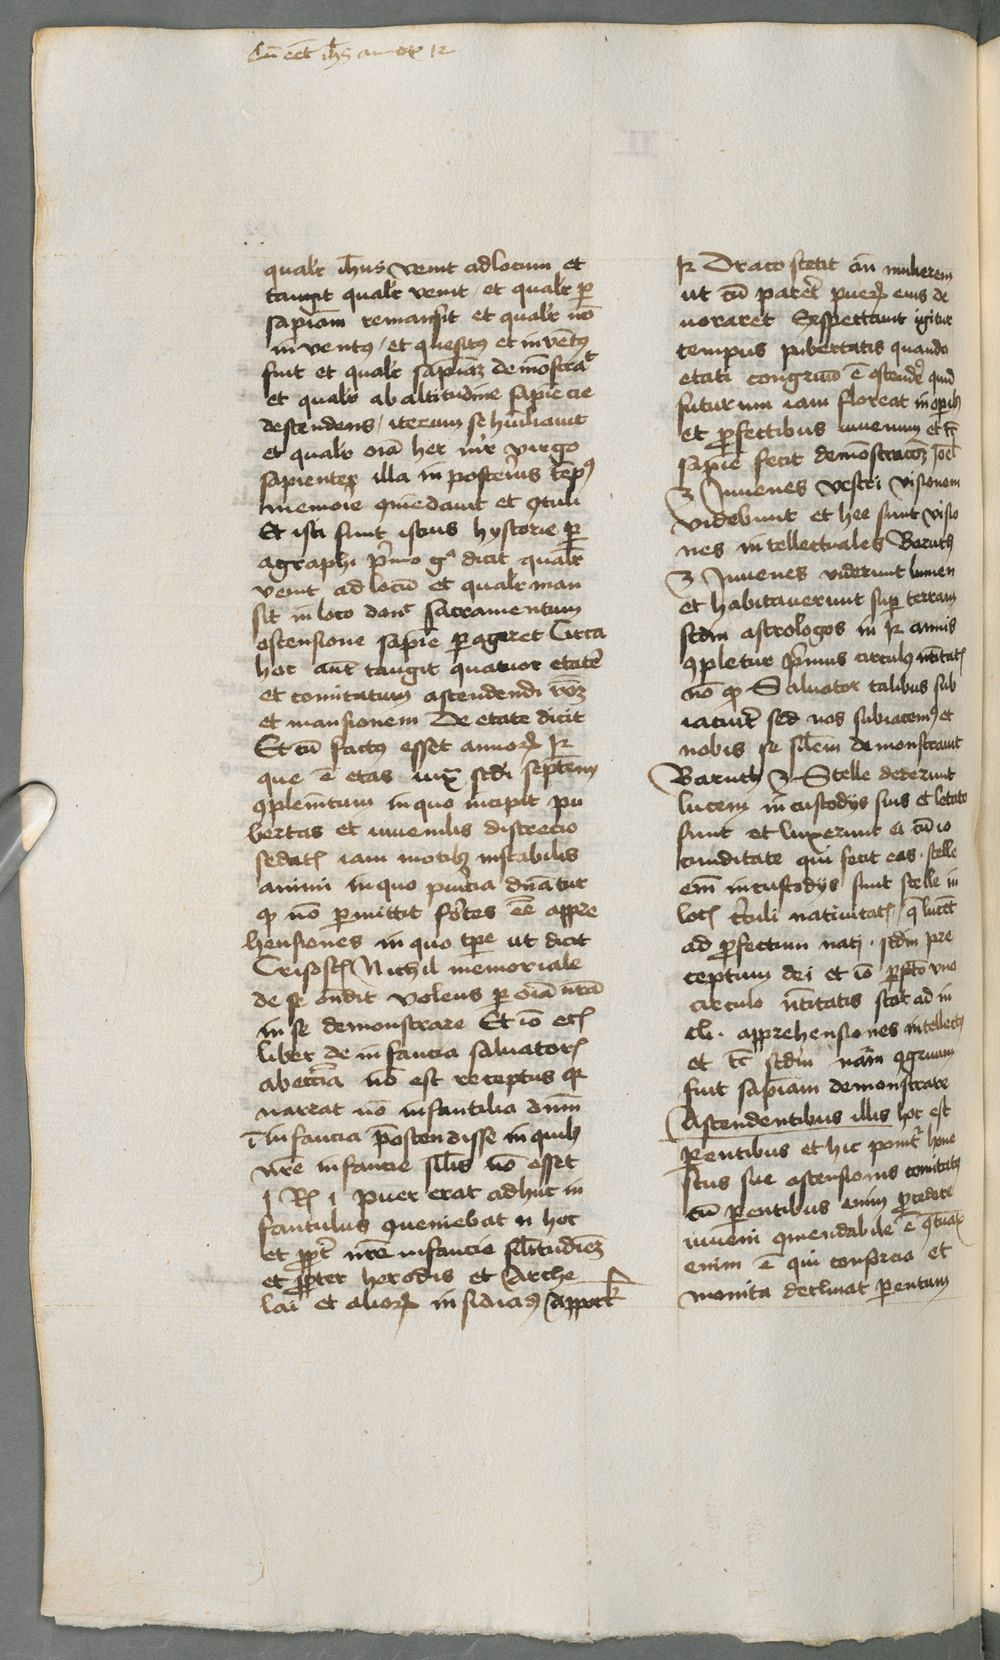 Cū eēt ihs annoꝝ 12
qualr̄ ihus venit ad locum et
tangit qualr̄ venit / et qualr̄ ꝑ
sapiam̄ remansit et qualr̄ nō
inventꝰ / et quesitꝰ et inventꝰ
fuit et qualr̄ sapiam̄ demōstrat
et qualr̄ ab altitudine sapiēcie
descendens / iterum se hūiliauit
et qualr̄ oīa hec mr̄ virgo
sapienter illa in posterius tēpꝰ
memorie ꝯmēdauit et ꝯtulit
Et isti sunt istius hystorie ꝑ
agraphi pͥmo gͦ dicit qualr̄
venit ad locū et qualr̄ man
sit in loco donͨ sacramentum
ostensione sapīe ꝑageret Circa
hoc aut̄ tangit quatuor etatē
et comitatum ascendendi
et mansionem De etate dicit
Et cū factꝰ esset annoꝝ 12
que ē etas iux̄ scd̄i septem
ꝯplemtum in quo incipit pu
bertas et iuuenilis discrecio
sedatꝭ iam motibꝫ instabilis
animi in quo dn̄atur
qꝫ nō ꝑmittit fortes eē appre
hensiones in quo tp̄e ut dicit
Crisostꝭ Nichil memoriale
de se ondit volens ꝑ oīa nr̄a
in se demonstrare Et iō etꝭ
liber de infancia saluatorꝭ
ab eccīa nō est receptus qꝫ
narrat nō infantilia dnm̄
ī infancia p̄ostendisse in quibꝫ
nr̄e infancie silis nō esset
puer erat adhuc in
fantulus ꝯueniebat n̄ hoc
et ꝓpt̄ nr̄e infancie silitudīeꝫ
et ꝓpter herodis et Arche
lai et alioꝝ insidias Appock
12 Draco stetit an̄ mulierem
ut cū paret̄ pueꝝ eius de
uoraret Exspectauit igitur
tempus pubertatis quando
etati congruū ē ostendē quid
futurum iam floreat in opibꝫ
et ꝓfectibus iuuenum et tc̄
sapīe fecit demōstracōꝫ Joel
3 Juuenes vestri visionem
videbunt et hee sunt visio
nes intellectuales Baruth
3 Juuenes viderunt lumen
et habitauerunt suꝑ terram
scdm astrologos in 12 annis
ꝯpletur pͥmus circulꝰ
nō qꝫ Saluator talibus sub
iaciut̄ sed nos subiacemꝰ et
nobis se silem̄ demonstrauit
Baruth 3 Stelle dederunt
lucem in custodijs suis et letate
sunt et luxerunt ei cū io
cunditate qui fecit eas . stelle
em̄ in custodijs sunt stelle in
locꝭ circuli natiuitatꝭ / q̄ lucēt
ad ꝓfectum nati . scdm pre
ceptum dei et iō ꝑfc̄to vno
circulo stat ad in
apprehensiones intellectꝰ
et tc̄ scdm nām ꝯgruum
fuit sapiam̄ demonstrare
Ascendentibus illis hoc est
ꝑentibus et hic ponit̄ hone
stus sue ascensionis comitatꝰ
cū ꝑentibus enim ꝓcedere
iuueni ꝯmendabile ē
enim ē qui consorcia et
monita declinat ꝑentum